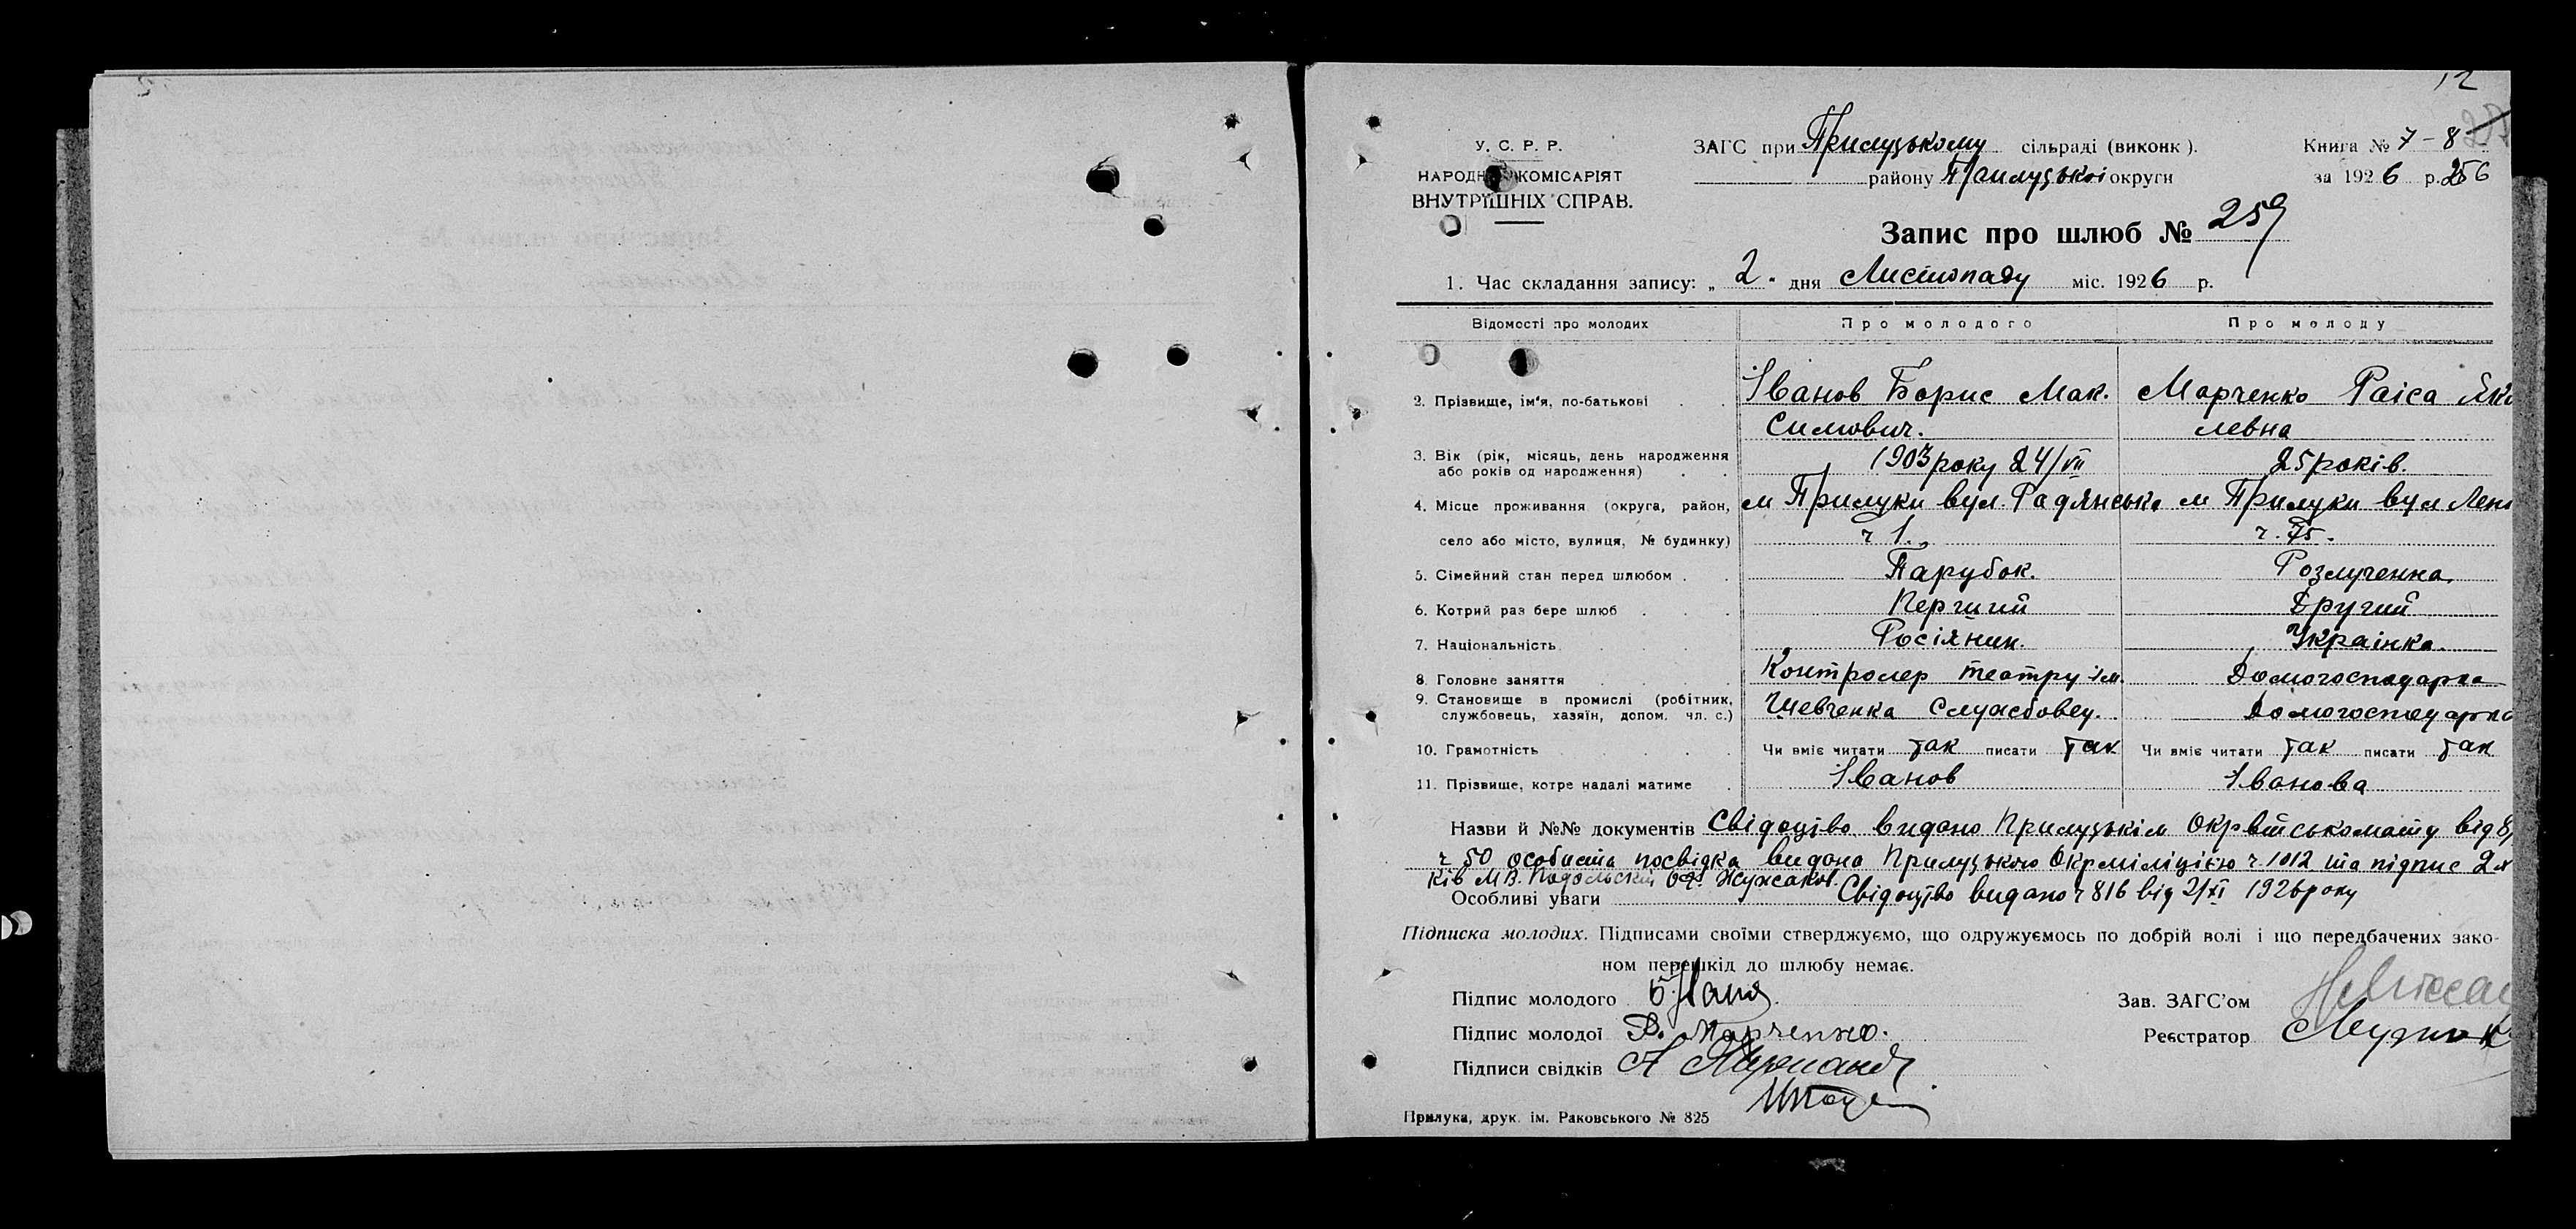 12
У. С. Р. Р.
НАРОДН КОМІСАРІЯТ
ВНУТРІШНІХ СПРАВ.
ЗАГС при Прилуцькому сільраді (виконк).
району Прилуцької округи
Книга № 7-8
за 1926 р. 256
Запис про шлюб № 259
1. Час складання запису: „2" дня Листопаду міс. 1926 р.
Відомості про молодих Про молодого Про молоду
2. Прізвище, ім'я, по-батькові Іванов Борис Мак. Марченко Раїса Як
симович. левна
3. Вік (рік, місяць, день народження або років од народження) 1903 року 24/VII 25 років.
4. Місце проживання (округа, район, м Прилуки вул. Радянська м Прилуки вул Лен
село або місто, вулиця, № будинку) ч 1. ч. 75.
5. Сімейний стан перед шлюбом Парубок. Розлученна.
6. Котрий раз бере шлюб Перший Другий
7. Національність Росіянин. Украінка.
8. Головне заняття Контролер театру ім. Домогосподарка
9. Становище в промислі (робітник, службовець, хазяїн, допом. чл. с.) Шевченка Службовец. Домогосподарка
10. Грамотність Чи вміє читати так писати так Чи вміє читати так писати так
11. Прізвище, котре надалі матиме Іванов Іванова
Назви й №№ документів Свідоцтво видано Прилуцькім Окрвійськомату від 8/
ч 50 особиста посвідка видана Прилуцькою Окрміліцією ч. 1012 та підпис 2х
ків М.В. Подольский
Особливі уваги Свідоцтво видано ч 816 від 2/XI 1926 року
Підписка молодих. Підписами своїми стверджуємо, що одружуємось по добрій волі і що передбачених зако-
ном перешкід до шлюбу немає.
Підпис молодого Зав. ЗАГС'ом
Підпис молодої Р. Марченко. Реєстратор
Підписи свідків А
Прилука, друк. ім. Раковського № 825